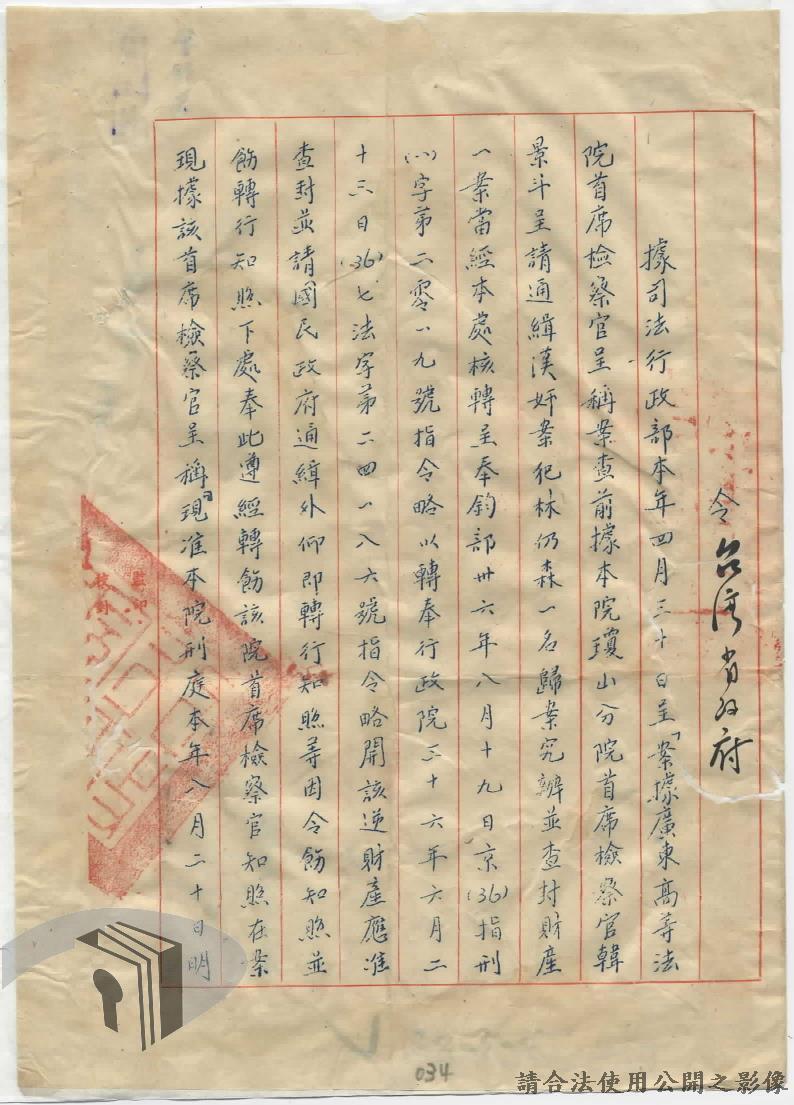 令台灣省政府
據司法行政部本年四月三十日呈「案據廣東高等法
院首席檢察官呈稱案查前據本院瓊山分院首席檢察官韓
景斗呈請通緝漢奸案犯林仍森一名歸案究辦並查封財產
一案當經本處核轉呈奉鈞部卅六年八月十九日京(36)指刑
(八)字第二零一九號指令略以轉奉行政院三十六年六月二
十三日(36)七法字第二四一八六號指令略開該逆財產應准
查封並請國民政府通緝外仰即轉行知照等因令飭知照並
飭轉行知照下處奉此遵經轉飭該院首席檢察官知照在案
現據該首席檢察官呈稱「現准本院刑庭本年八月二十日明
監印
校對
034
請合法使用公開之影像